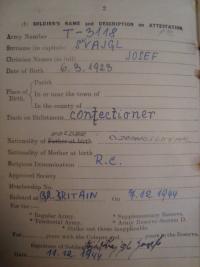 2
(1) SOLDIER'S NAME and DESCRIPTION on ATTESTATION
Army Number T-3118
Surname (in capitals) ŠVAJGL
Christian Names (in full) JOSEF
Date of Birth 6.3.1923
Place of Birth.
Parish
In or near the town of
In the county of
Trade on Enlistment confectioner
Nationality of Father at birth
Nationality of Mother at birth
Religious Denomination R.C.
Approved Society
Membership No.
Enlisted at GR. BRITAIN On 7.12.1944
For the:—
* Regular Army. * Supplementary Reserve.
* Territorial Army. * Army Reserve Section D.
* Strike out those inapplicable.
For years with the Colours and years in the Reserve.
Signature of Soldier
Date 11.12.1944